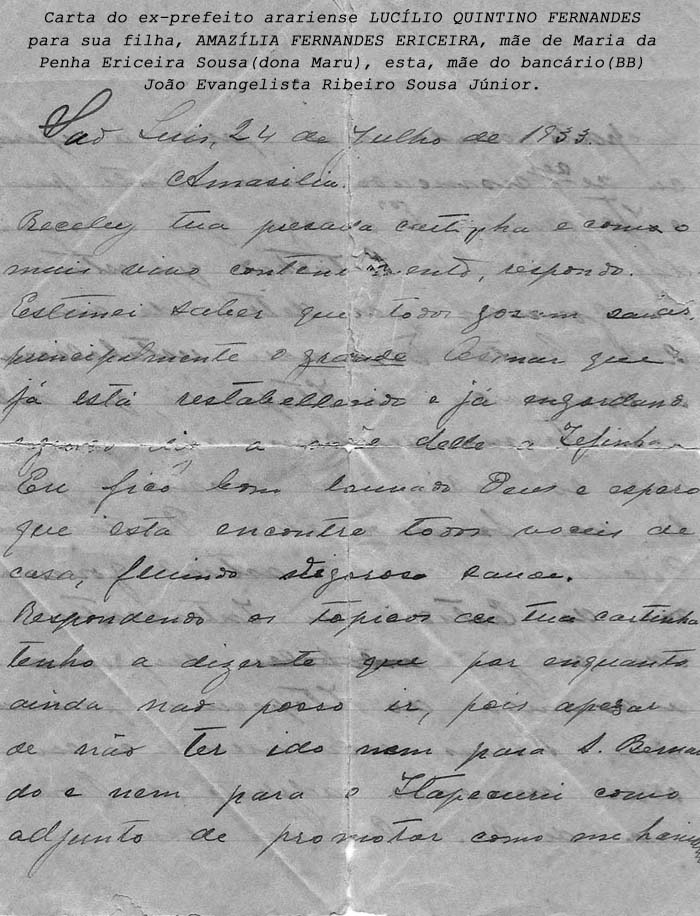 Carta do ex-prefeito arariense LUCÍLIO QUINTINO FERNANDES
para sua filha, AMAZÍLIA FERNANDES ERICEIRA, mãe de Maria da
Penha Ericeira Sousa(dona Maru), esta, mãe do bancário(BB)
João Evangelista Ribeiro Sousa Júnior.
São Luis, 24 de Julho de 1933.
Amasilia.
Recebey tua presada cartinha e com o
mais vivo contentamento, respondo.
Estimei saber que todos gosam saude,
principalmente o grande que
já está restabellecido e já engordando
a mãe delle a Zefinha
Eu fico bom louvado Deus e espero
que esta encontre todos voceis de
casa, fruindo vigorosa saude.
Respondendo os topicos de tua cartinha
tenho a dizer-te que por enquanto
ainda não posso ir, pois apezar
de não ter ido nem para S. Bernar
do e nem para o Itapecurú como
adjunto de promotor como me